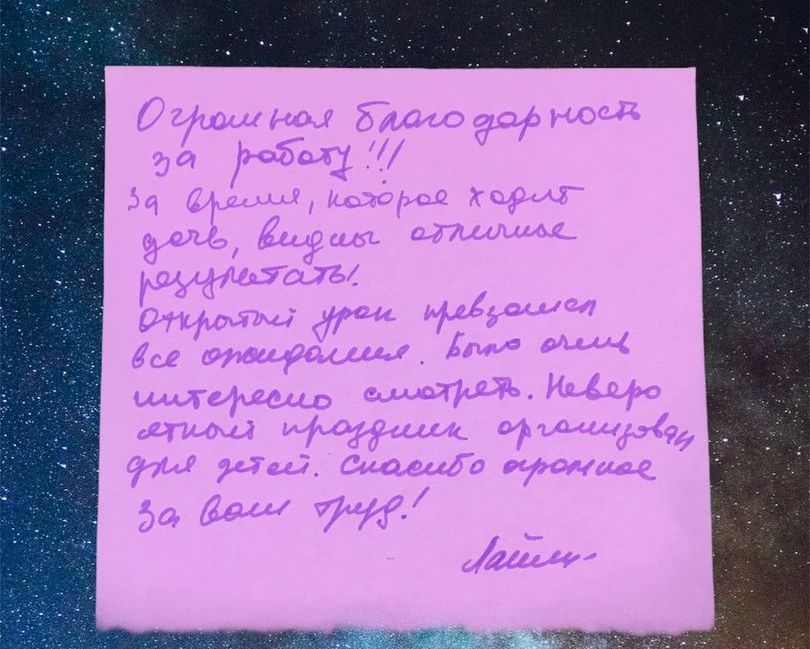 Огромная благодарность
за работу!!!
За время, которое ходит
дочь, видны отличные
результаты.
Открытый урок превзошел
все ожидания. Было очень
интересно смотреть. Неверо
ятный праздник организован
для детей. Спасибо огромное
За ваш труд!